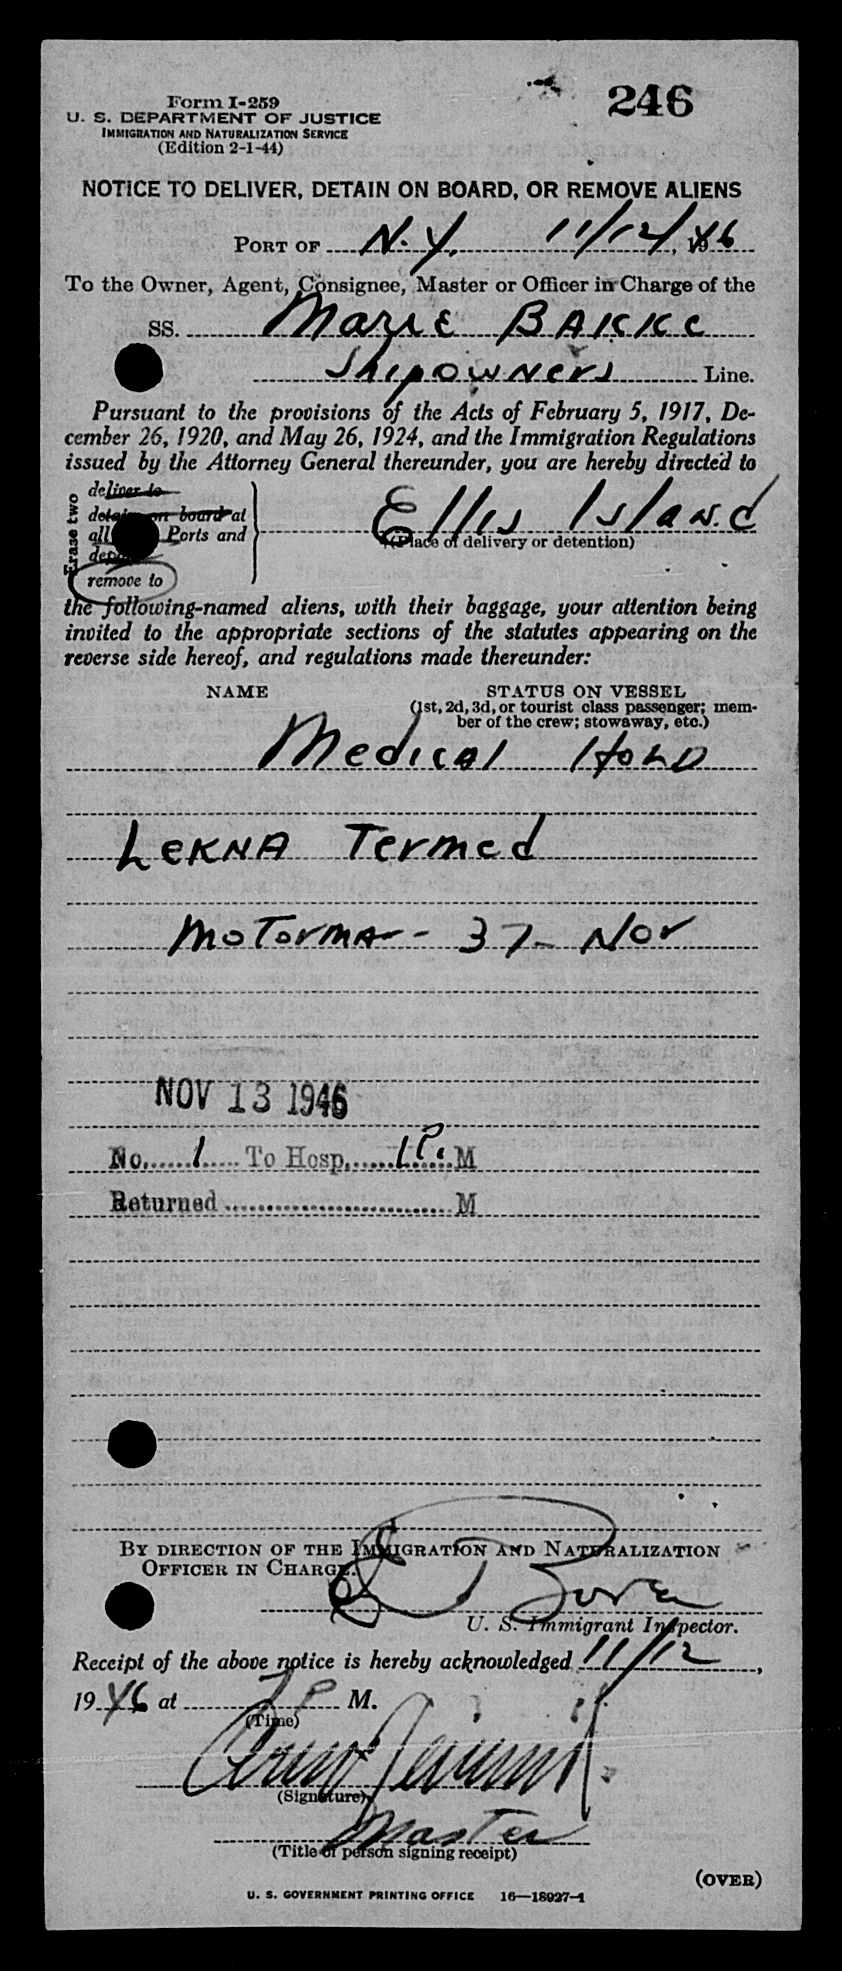 246
Form I-259
U. S. DEPARTMENT OF JUSTICE
IMMIGRATION AND NATURALIZATION SERVICE
(Edition 2-1-44)
NOTICE TO DELIVER, DETAIN ON BOARD, OR REMOVE ALIENS
PORT OF N. Y. 11/12/, 1946
To the Owner, Agent, Consignee, Master or Officer in Charge of the
SS. Marie BAKKe
Shipowners Line.
Pursuant to the provisions of the Acts of February 5, 1917, De-
cember 26, 1920, and May 26, 1924, and the Immigration Regulations
issued by the Attorney General thereunder, you are hereby directed to
Erase two
deliver to
detain on board at
all Ports and
remove to
Ellis Island
(Place of delivery or detention)
the following-named aliens, with their baggage, your attention being
invited to the appropriate sections of the statutes appearing on the
reverse side hereof, and regulations made thereunder:
NAME STATUS ON VESSEL
(1st, 2d, 3d, or tourist class passenger; mem-
ber of the crew; stowaway, etc.)
Medical HOLD
LEKNA Termed
MoTorma - 37 - Nor
NOV 13 1946
No. 1 To Hosp. 1P. M
Returned M
BY DIRECTION OF THE IMMIGRATION AND NATURALIZATION
OFFICER IN CHARGE.
U. S. Immigrant Inspector.
Receipt of the above notice is hereby acknowledged 11/12,
1946 at P M.
(Time)
(Signature)
Master
(Title of person signing receipt)
(OVER)
U. S. GOVERNMENT PRINTING OFFICE 16—18927-1